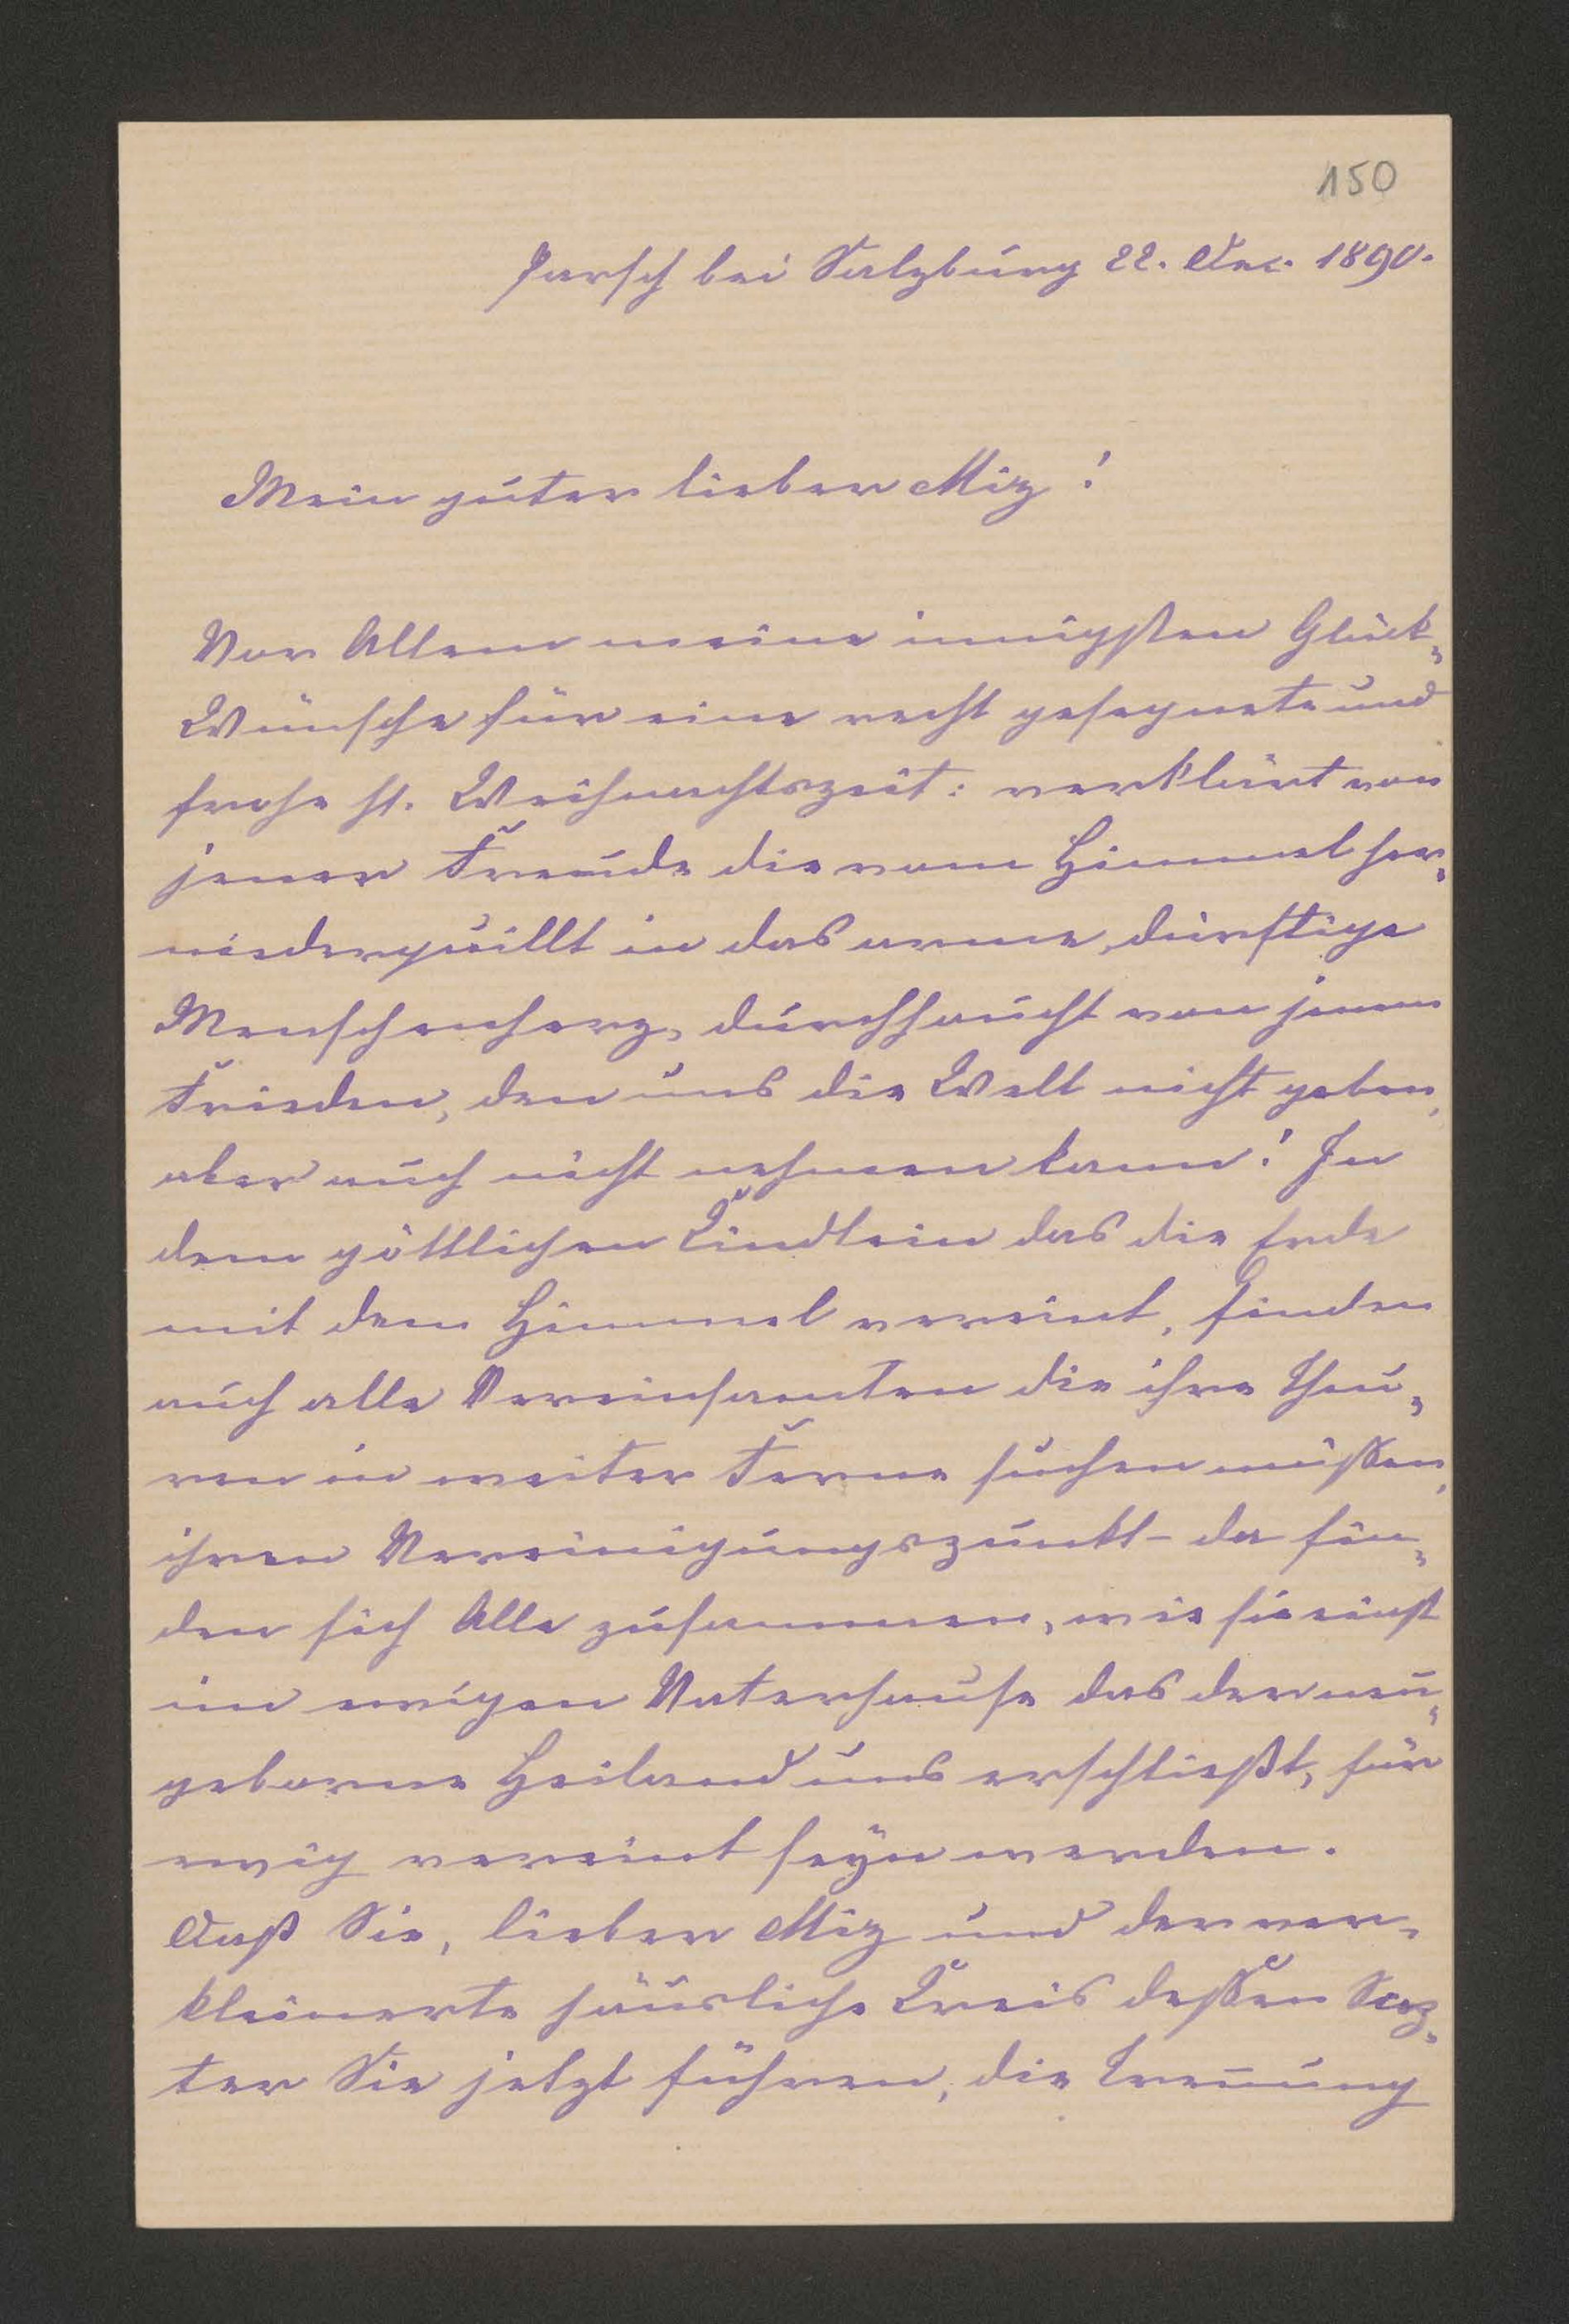 150
Parsch bei Salzburg 22. Dec. 1890.
Mein guter lieber Miz!
Vor Allem meine innigsten Glück„
Wünsche für eine recht gesegnete und
frohe hl. Weihnachtszeit: verklärt von
jener Freude die vom Himmel her„
niederquillt in das arme, dürftige
Menschenherz, durchhaucht von jenem
Frieden, den uns die Welt nicht geben,
aber auch nicht nehmen kann! In
dem göttlichen Kindlein das die Erde
mit dem Himmel vereint, finden
auch alle Vereinsamten die ihre Theu„
ren in weiter Ferne suchen müssen,
ihren Vereinigungspunkt - da fin„
den sich Alle zusammen, wie sie einst
im ewigen Vaterhause das der neu„
geborne Heiland uns erschließt, für
ewig vereint seÿn werden.
Daß Sie, lieber Miz und der ver„
kleinerte häusliche Kreis dessen Scep„
ter Sie jetzt führen, die Trennung